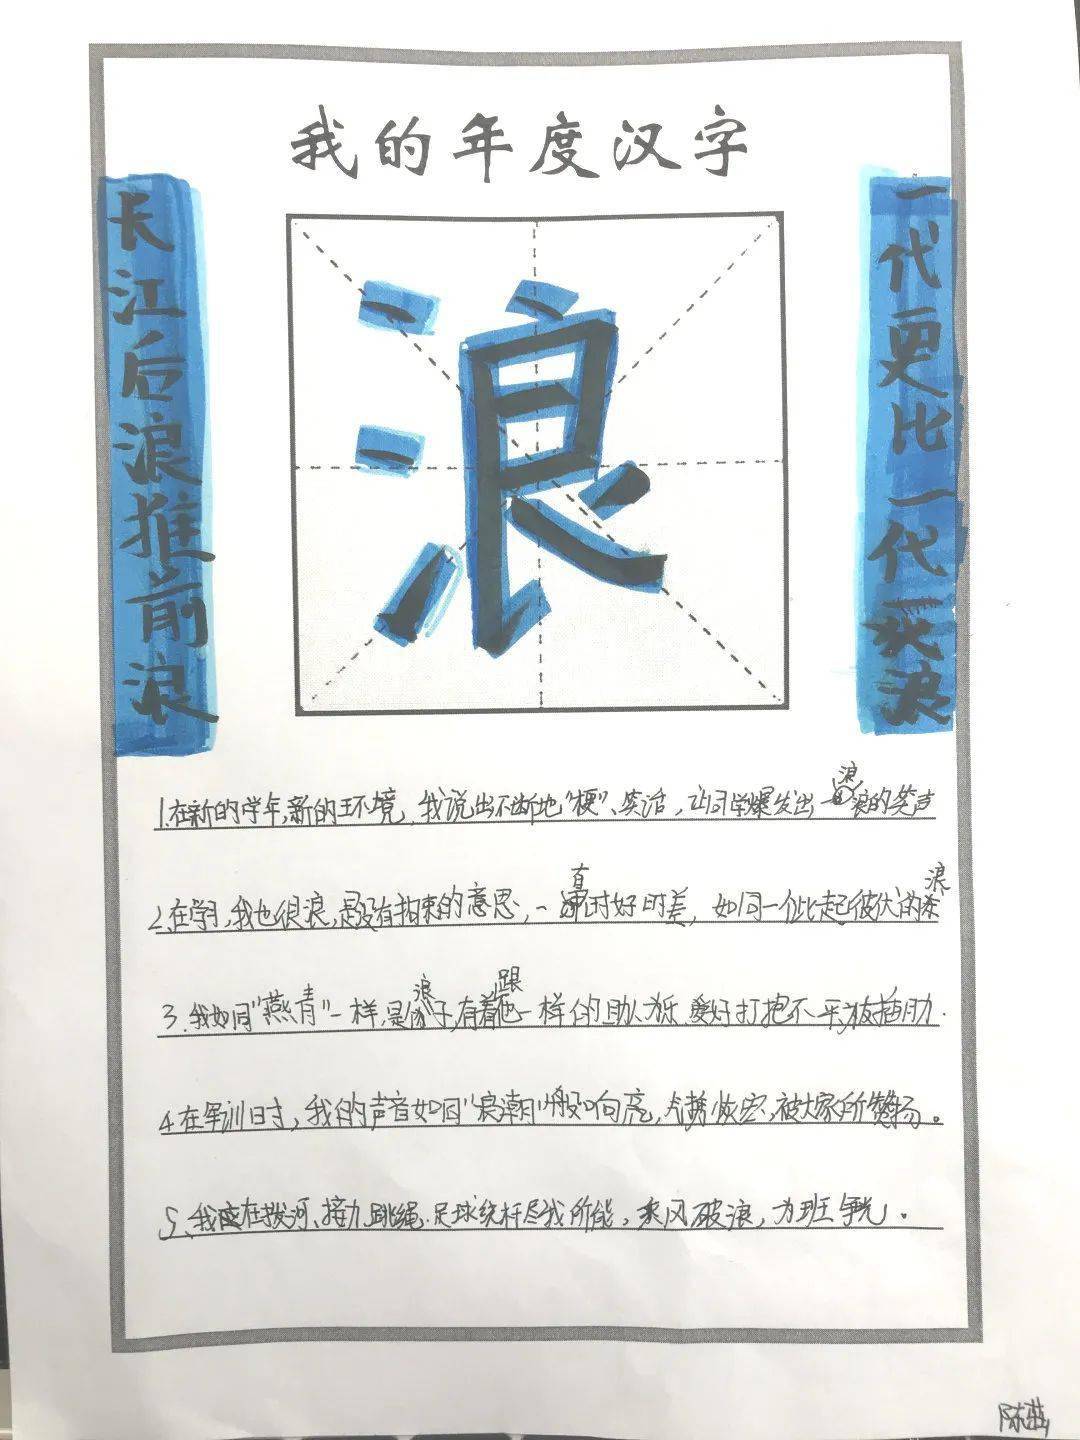 我的年度汉字
长江后浪推前浪
浪
一代更比一代浪
1.在新的学年,新的环境,我说出不断地"梗"、笑话,让同学爆发出一浪浪的笑声
2.在学习,我也很浪,是没有拘束的意思,一直时好时差,如同一个此起彼伏的浪
3.我如同"燕青"一样,是浪子,有着跟他一样的助人为乐,爱好打抱不平,拔插助.
4.在军训时,我的声音如同"浪潮"般响亮,大携恢宏,被大家所赞扬。
5.我在拔河、接力、跳绳.足球绕杆尽我所能,乘风破浪,为班争光。